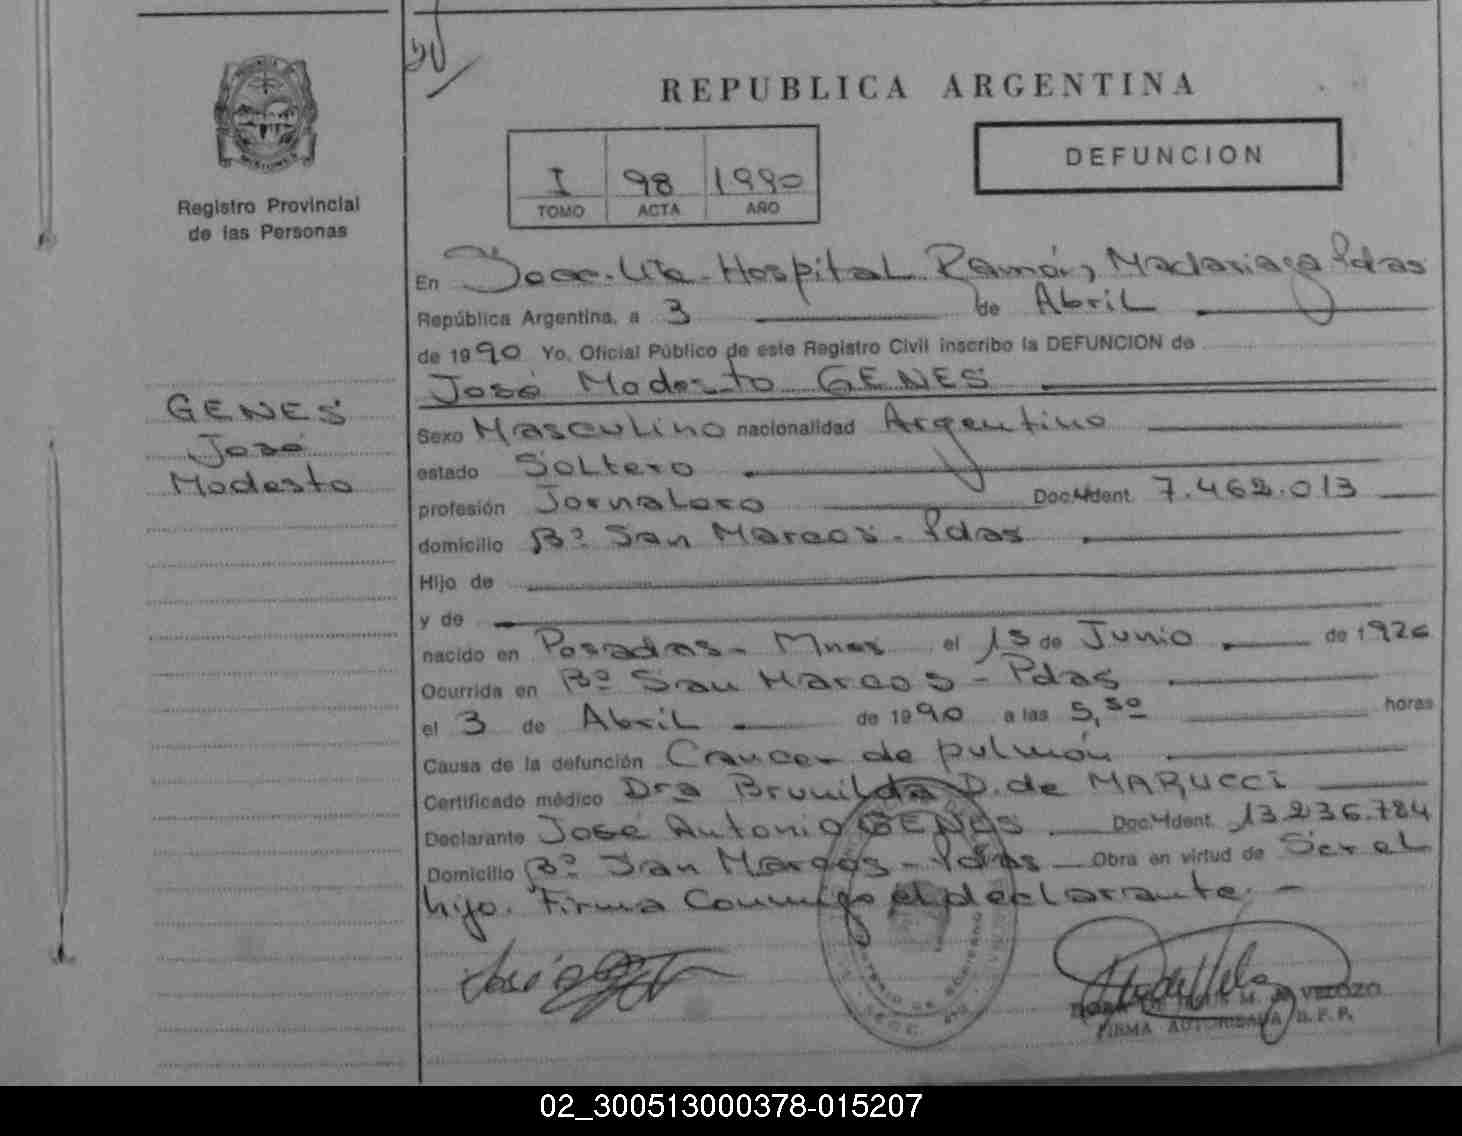 REPUBLICA ARGENTINA
DEFUNCION
I 98 1990
TOMO ACTA AÑO
Registro Provincial
de las Personas
GENES
José
Modesto
En Secc. Hospital Ramón Madariaga Pdas
República Argentina, a 3 de Abril
de 1990 Yo, Oficial Público de este Registro Civil inscribo la DEFUNCION de
José Modesto GENES
Sexo Masculino nacionalidad Argentino
estado Soltero
profesión Jornalero Doc. Ident. 7.462.013
domicilio Bº San Marcos - Pdas
Hijo de
y de
nacido en Posadas - Mnes el 15 de Junio de 1926
Ocurrida en Bº San Marcos - Pdas
el 3 de Abril de 1990 a las 5,30 horas
Causa de la defunción Cancer de pulmón
Certificado médico Dra Brunilda D. de MARUCCI
Declarante José Antonio GENES Doc. Ident. 13.236.784
Domicilio Bº San Marcos - Pdas Obra en virtud de Ser el
hijo. Firma Conmigo el declarante. -
M. de VELOZO
FIRMA AUTORIZADA R. P. P.
02_300513000378-015207